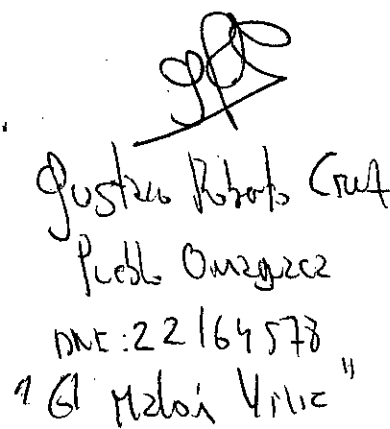 Gustavo Roberto Cruz
Pueblo Omaguaca
DNI: 22164578
"El Malón Vive"